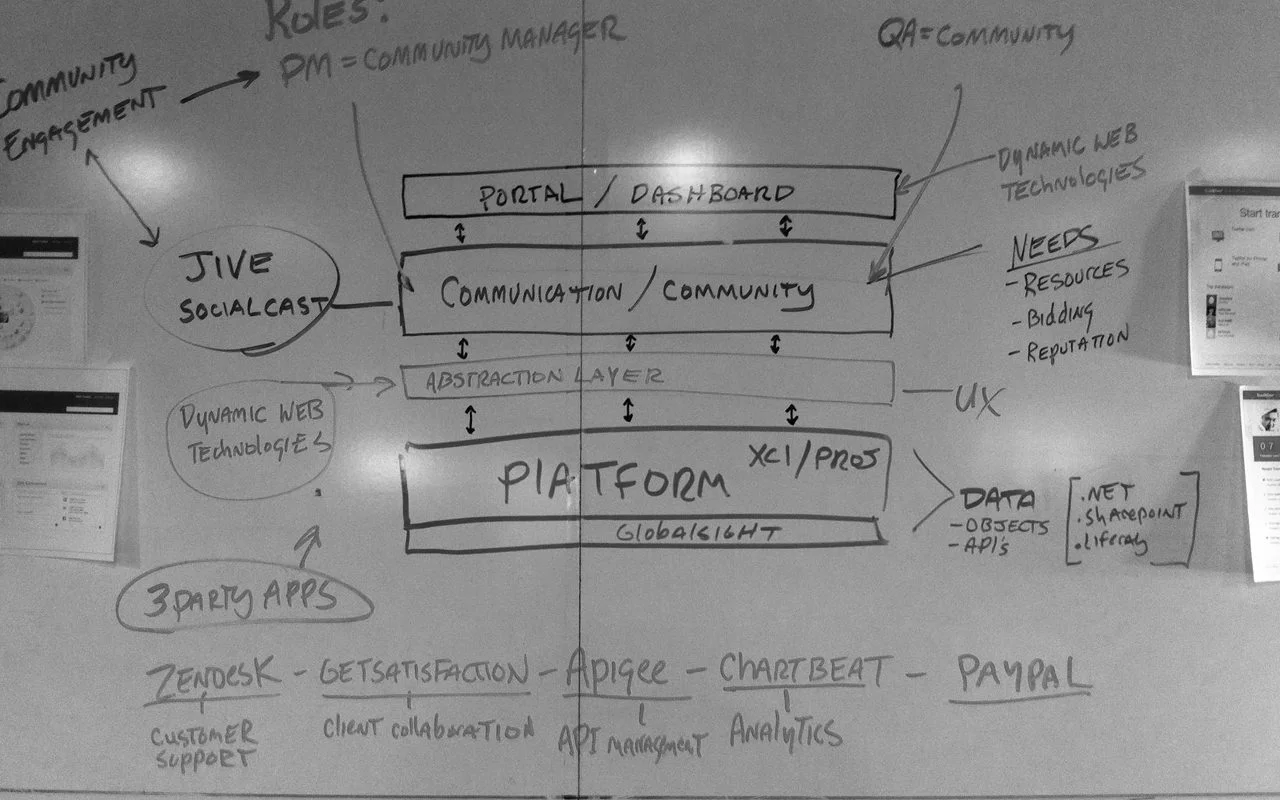 Roles:
PM = COMMUNITY MANAGER
QA = COMMUNITY
COMMUNITY
ENGAGEMENT
DYNAMIC WEB
TECHNOLOGIES
PORTAL / DASHBOARD
JIVE
SOCIALCAST
COMMUNICATION / COMMUNITY
NEEDS
- RESOURCES
- Bidding
- REPUTATION
ABSTRACTION LAYER
UX
DYNAMIC WEB
TECHNOLOGIES
PLATFORM
XCI/PROJ
GlobalSIGHT
DATA
- OBJECTS
- API's
.NET
.SHAREPOINT
.liferay
3PARTY APPS
ZENDESK - GETSATISFACTION - Apigee - CHARTBEAT - PAYPAL
CUSTOMER
SUPPORT
Client collaboration
API MANAGMENT
ANALYTICS
Start tran